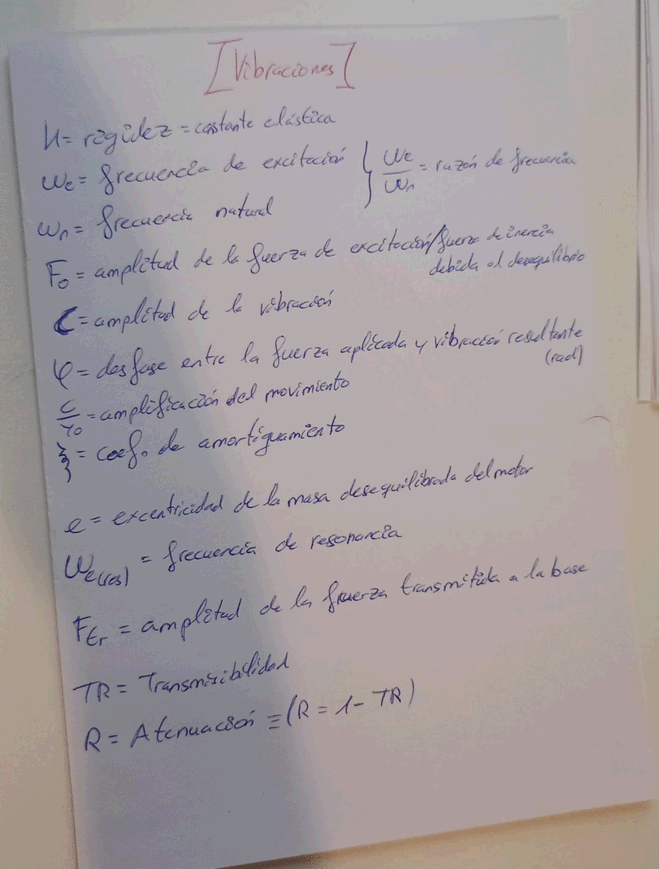 [Vibraciones]
K = rigidez = constante elástica
ωe = frecuencia de excitación } ωe/ωn = razón de frecuencia
ωn = frecuencia natural
Fo = amplitud de la fuerza de excitación/fuerza de inercia
debida al desequilibrio
C = amplitud de la vibración
φ = desfase entre la fuerza aplicada y vibración resultante
(rad)
C/Yo = amplificación del movimiento
ξ = coef. de amortiguamiento
e = excentricidad de la masa desequilibrada del motor
ωe(res) = frecuencia de resonancia
Ftr = amplitud de la fuerza transmitida a la base
TR = Transmisibilidad
R = Atenuación ≡ (R = 1 - TR)